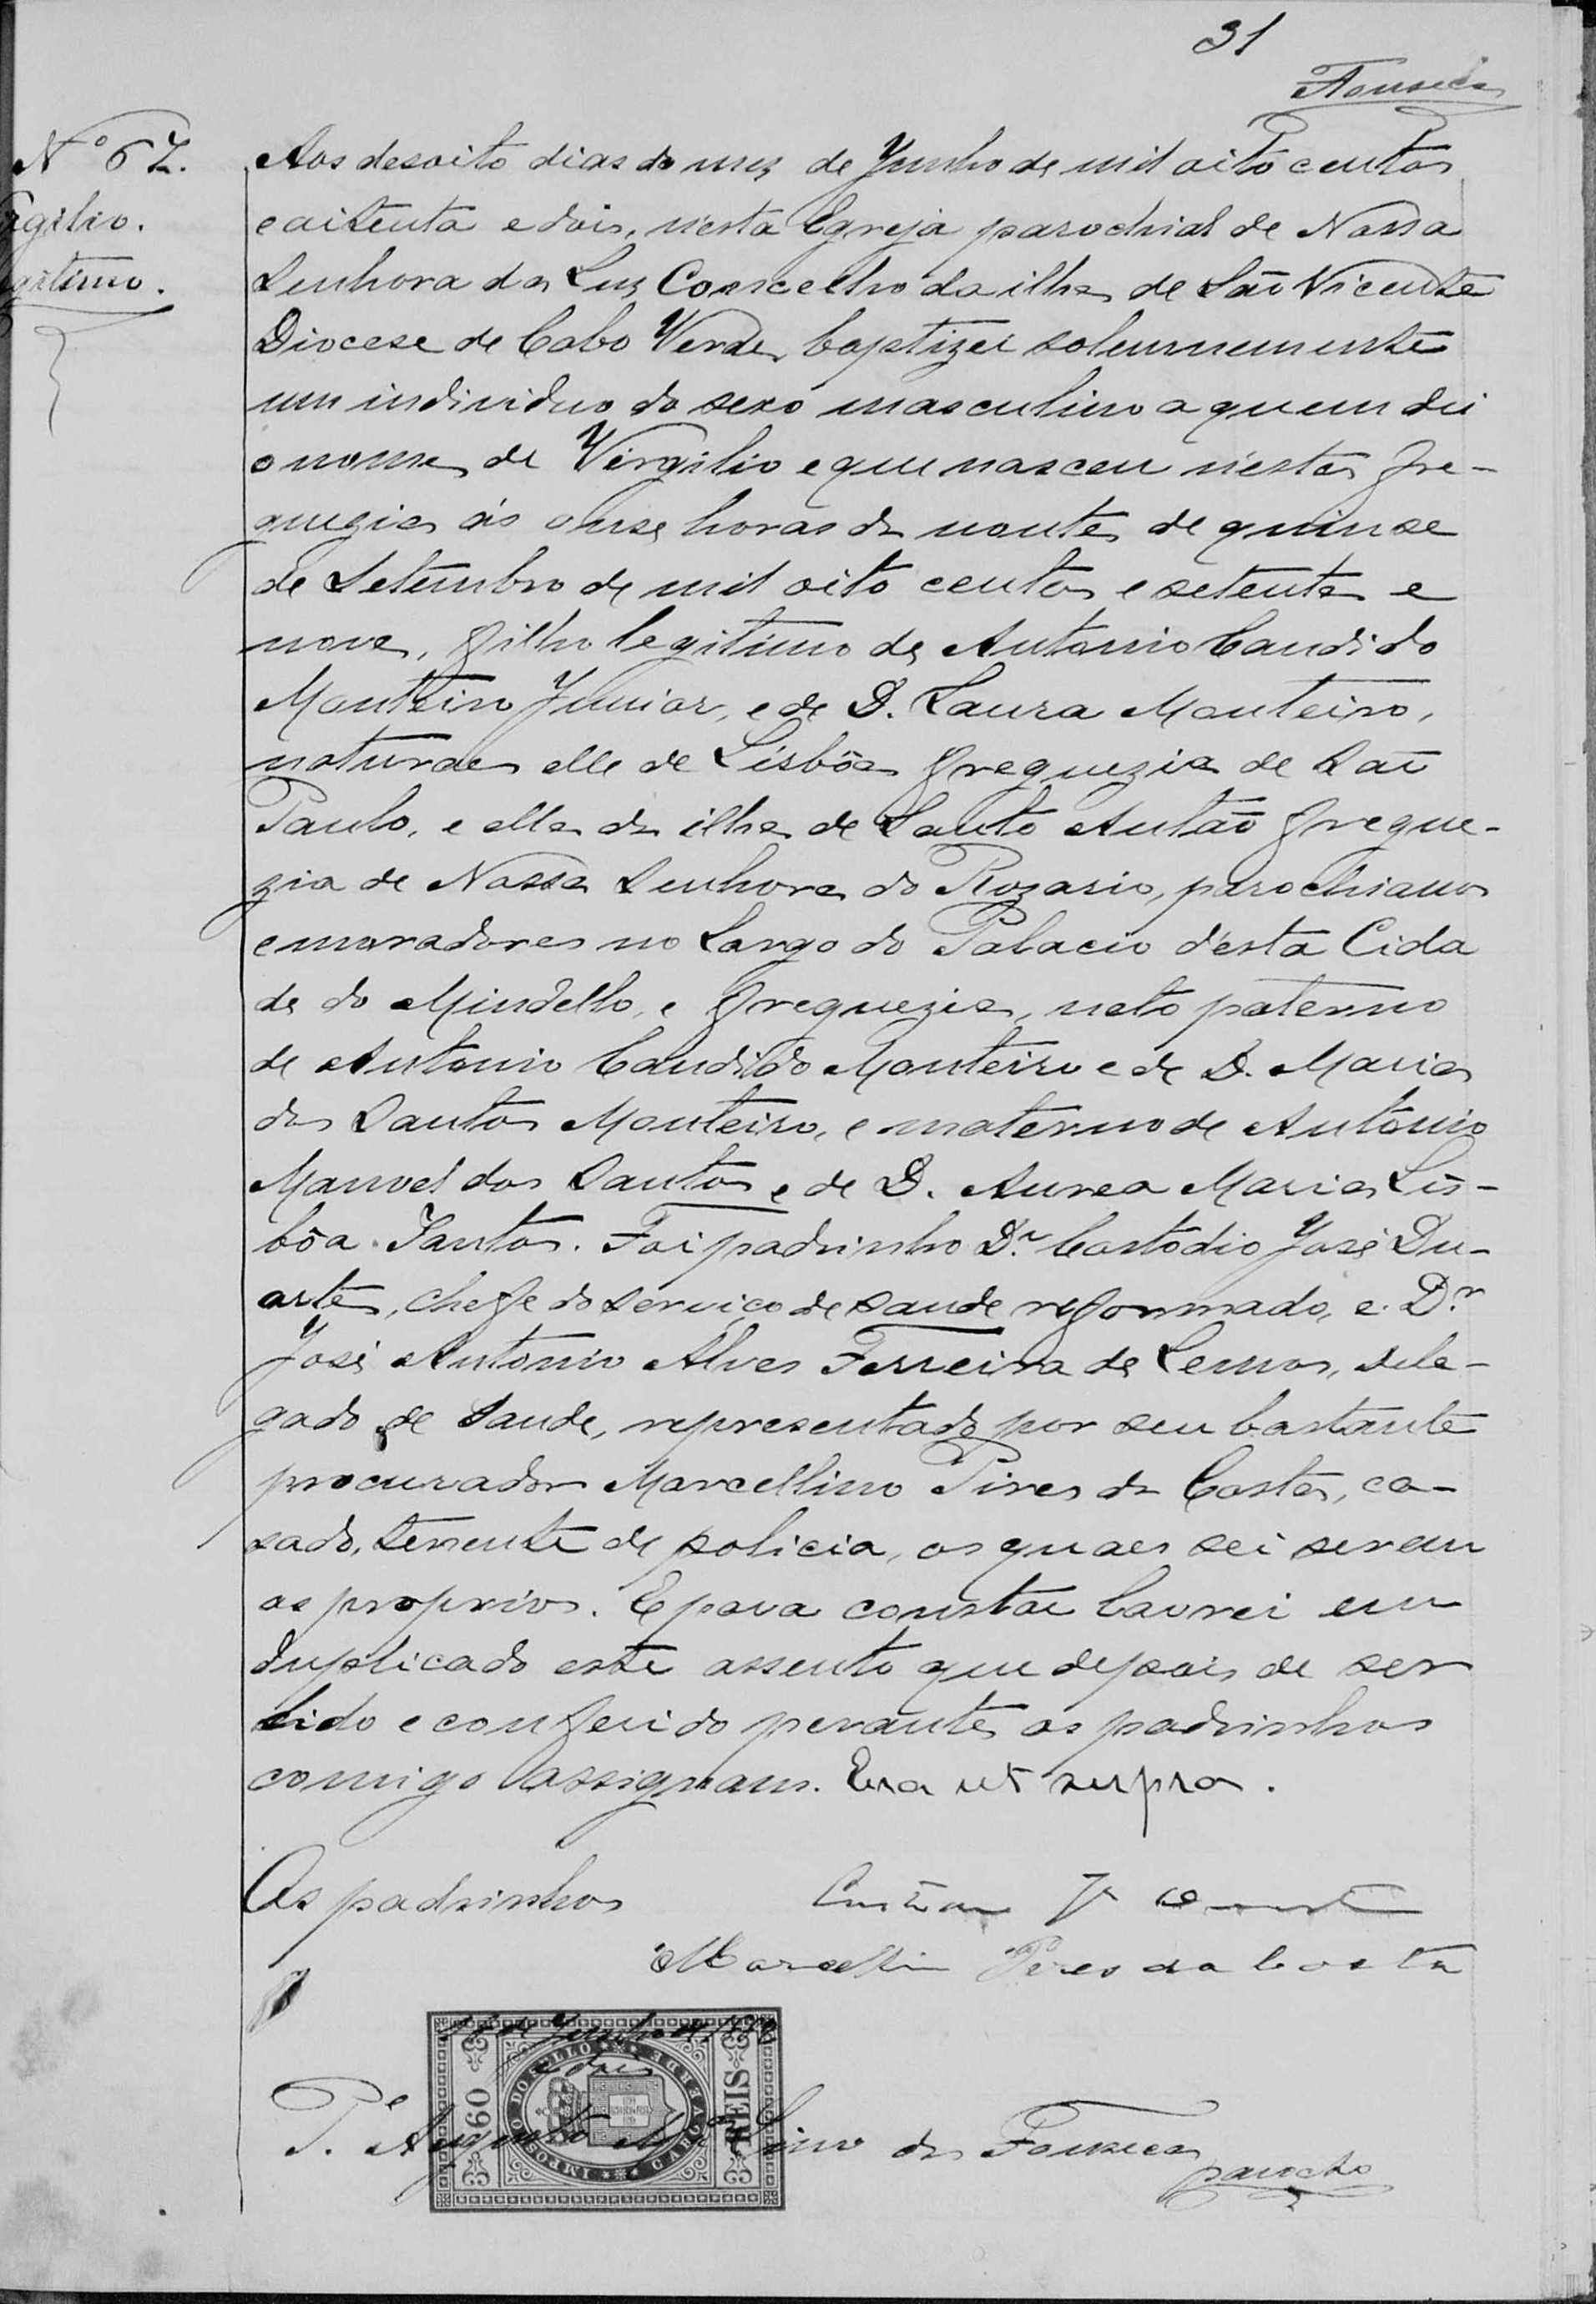 31
Fonseca
Nº 67.
Aos desoito dias do mez de Junho de mil oito centos
e oitenta e dois, n'esta Egreja parochial de Nossa
Senhora da Luz Conscelho da ilha de São Vicente
Diocese de Cabo Verde, baptizei solemnemente
um individuo do sexo masculino a quem dei
o nome de Virgilio e que nasceu n'esta fre-
guezia ás onse horas da noute de quinse
de Setembro de mil oito centos e setenta e
nove, filho legitimo de Antonio Candido
Monteiro Junior, e de D. Laura Monteiro,
naturaes elle de Lisbôa freguezia de São
Paulo, e ella da ilha de Santo Antão fregue-
zia de Nossa Senhora do Rozario, parochianos
e moradores no Largo do Palacio d'esta Cida
de do Mindello, e freguezia, neto paterno
de Antonio Candido Monteiro e de D. Maria
dos Santos Monteiro, e materno de Antonio
Manuel dos Santos e de D. Aurea Maria Lis-
bôa Santos. Foi padrinho Dr. Custodio José Du-
arte, chefe do serviço de saude reformado, e Dr.
José Antonio Alves Ferreira de Lemos, dele-
gado de Saude, representado por seu bastante
procurador Marcellino Pires da Costa, ca-
sado, tenente de policia, os quaes sei serem
os proprios. E para constar lavrei em
duplicado este assento que depois de ser
lido e conferido perante os padrinhos
comigo assignam. Era ut supra.
gilio.
gitimo.
Os padrinhos
Custodio J. Duarte
Marcellino Pires da Costa
18 de Junho de 1882
e dois
IMPOSTO DO SELLO
CABO VERDE
60 REIS
Pe. Augusto Lino da Fonseca
parocho